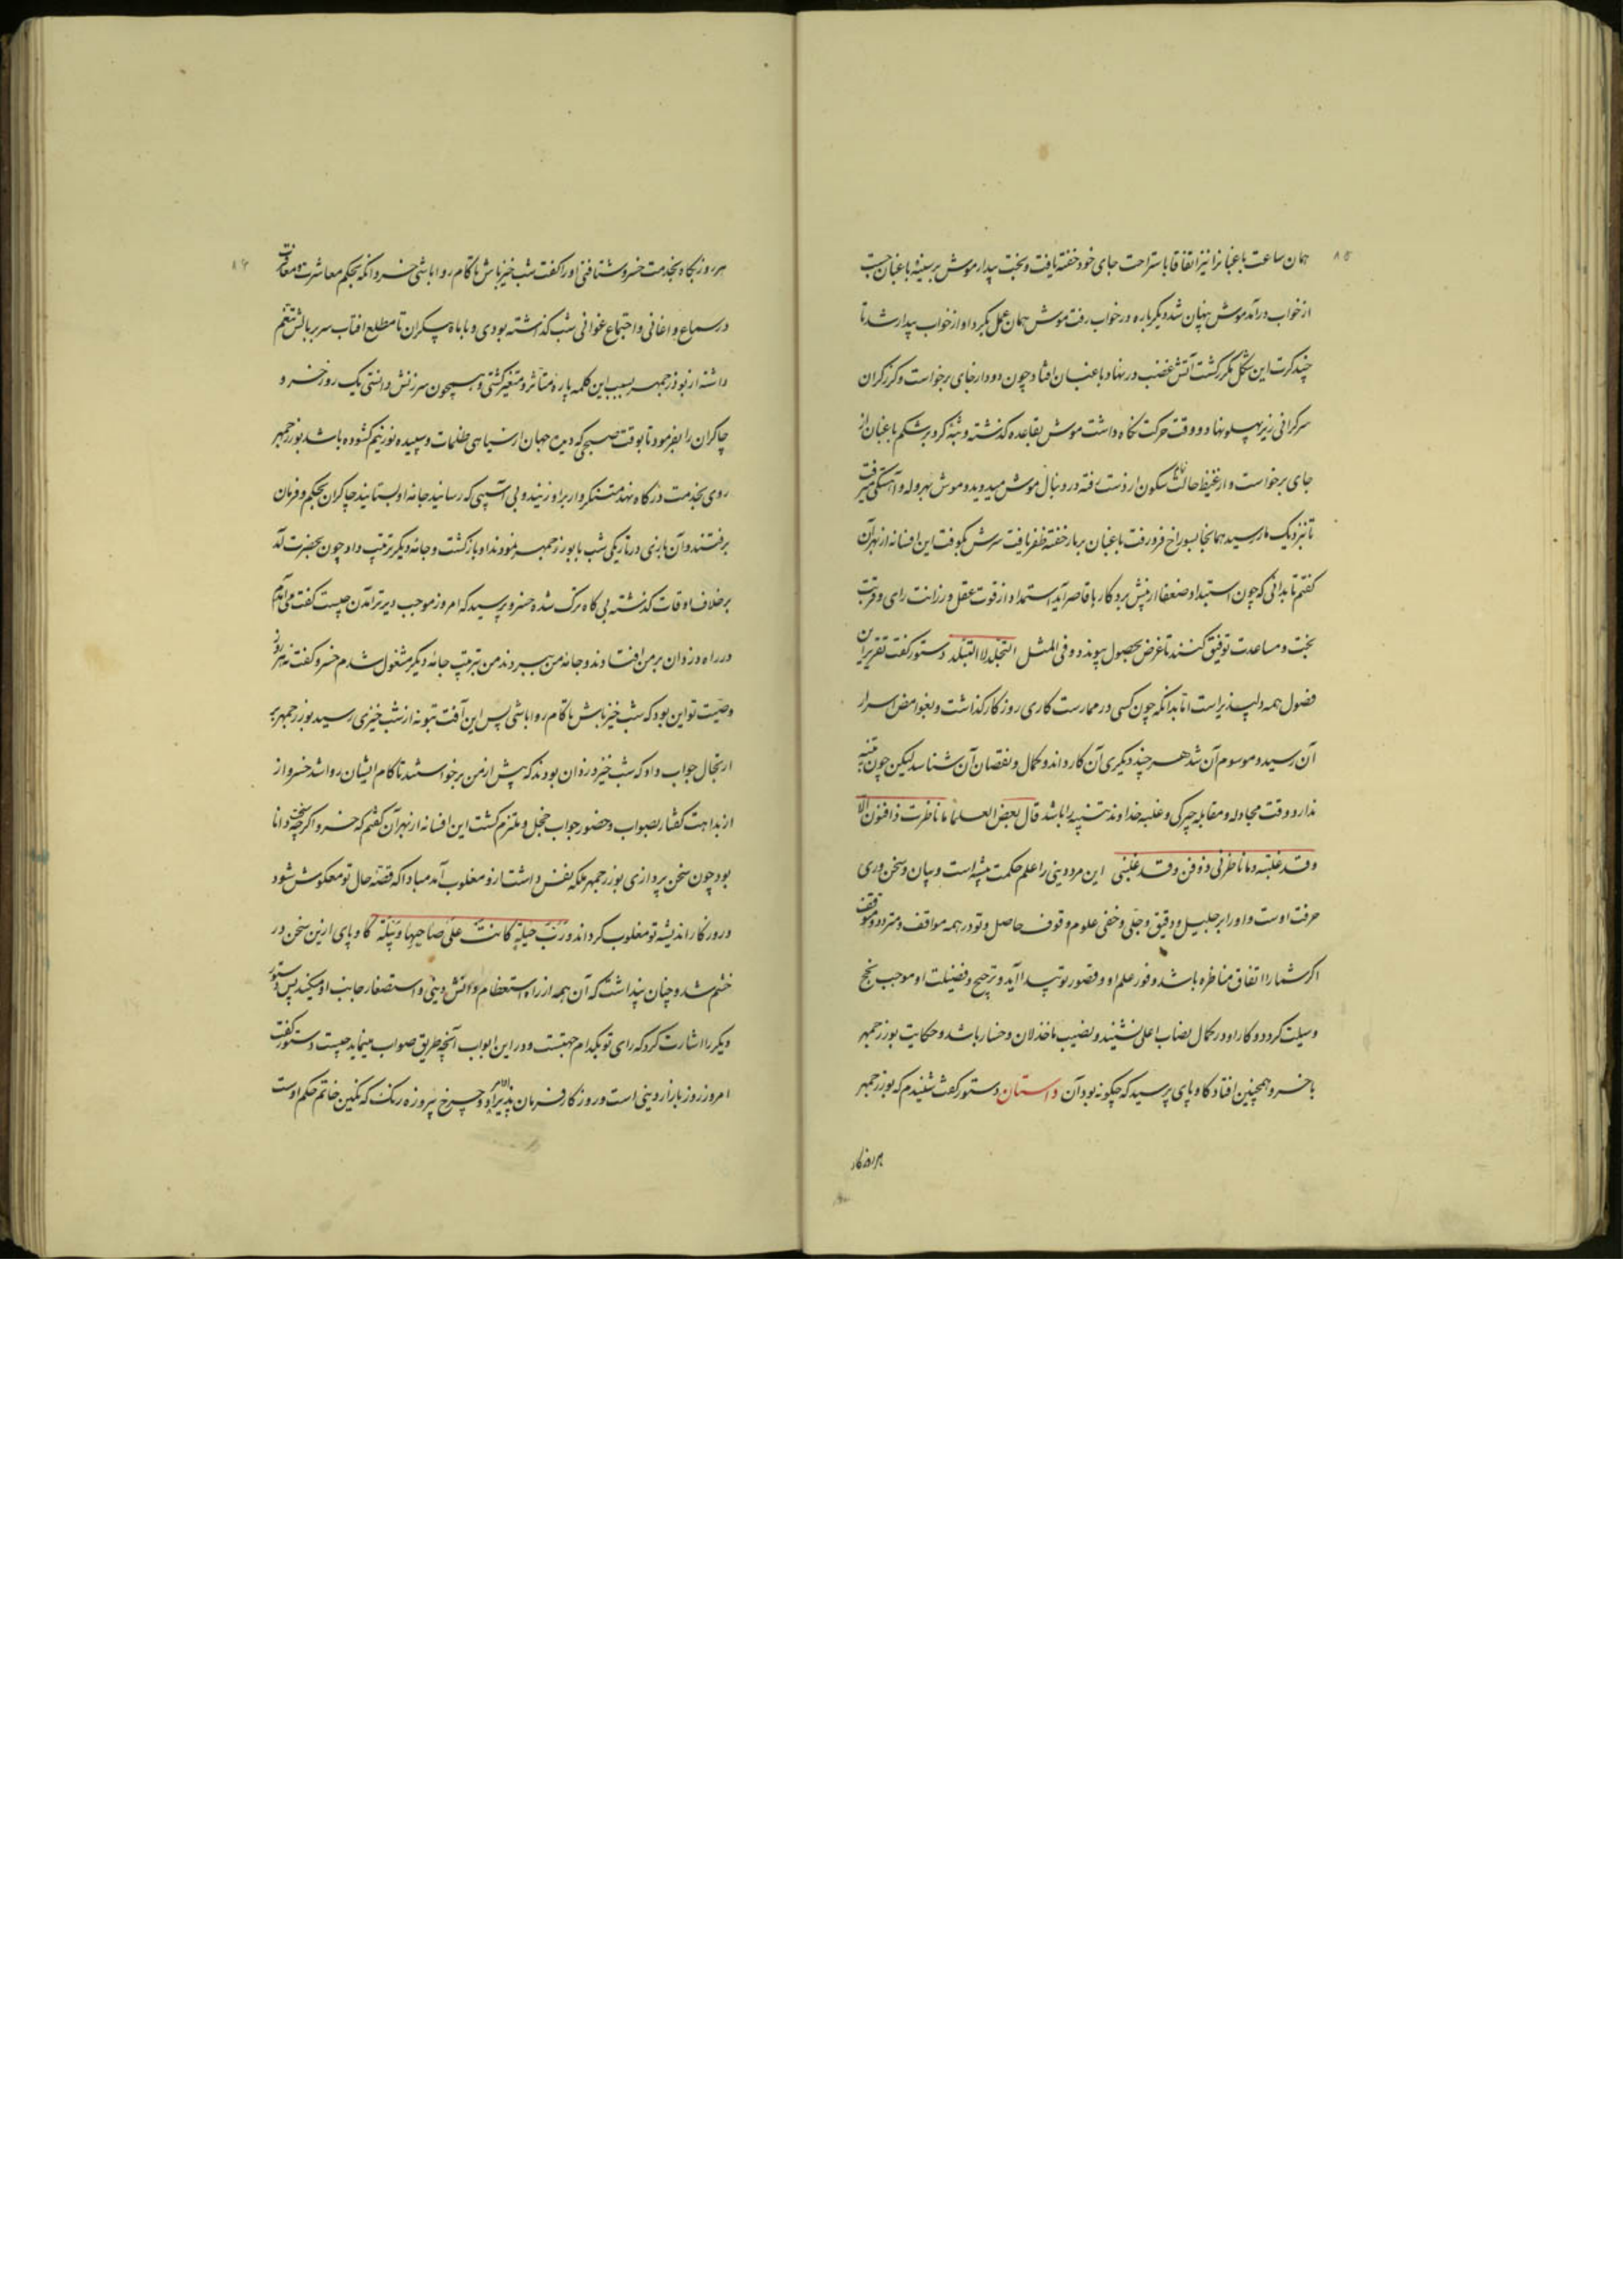 ۸۵
همان ساعت باغبانرا نیز اتفاقا باستراحت جای خود خفته یافت و بخت بیدار موش بر سینۀ باغبان جست
از خواب درآمد موش پنهان شد دیگر باره در خواب رفت موش همان عمل بکرد او از خواب بیدار شد تا
چند کرت این شکل مکرر گشت آتش غضب در نهاد باغبان افتاد چون دود از جای برخواست و کرز کران
سر کرانی زیر پهلو نهاد و وقت حرکت نگاه داشت موش بقاعده گذشته و شبه کرد بر شکم باغبان از
جای برخواست و از غیظ حالت سکون از دست رفته در دنبال موش میدوید و موش بهروله و آهستگی میرفت
تا بنزدیک مار رسید همانجا بسوراخ فرو رفت باغبان بر مار خفته ظفر یافت سرش بکوفت این افسانه از بهر آن
گفتم تا بدانی که چون استبداد ضعفا از پیش برد کار با قاصر آید استمداد از قوت عقل و رزانت رای و قربت
بخت و مساعدت توفیق کنند تا غرض بحصول پیوندد و فی المثل التجلد لا التبلد دستور گفت تقریر این
فصول همه دلپذیر است اما بدانکه چون کسی در ممارست کاری روزگار گذاشت و بغوامض اسرار
آن رسید و موسوم آن شد هر چند دیگری آن کار داند و کمال و نقصان آن شناسد لیکن چون پیشه
ندارد وقت مجادله و مقابله چیرگی و غلبه خداوند پیشه را باشد قال بعض العلما ما ناظرت ذا فنون الا
وقد غلبته وما ناظرنی ذو فن وقد غلبنی این مرد دینی را علم حکمت پیشه است و بیان و سخن وری
حرفت اوست و او را بر جلیل و دقیق و جلی و خفی علوم وقوف حاصل و تو در همه مواقف متردد و متوقف
اگر شما را اتفاق مناظره باشد وفور علم او و قصور تو پیدا آید و ترجیح و فضیلت او موجب نجح
وسیلت گردد و کار او در کمال نصاب اعلی نشیند و نصیب ما خذلان و خسار باشد و حکایت بوزرجمهر
با خسرو همچنین افتاد کاو پای پرسید که چگونه بود آن داستان دستور گفت شنیدم که بوزرجمهر
هر روز بگاه
۸۶
هر روز بگاه بخدمت خسرو شتافتی و او را گفت شب خیز باش تا کام روا باشی خسرو از آنکه بحکم معاشرت و معاقرت
در سماع اغانی و اجتماع غوانی شب گذاشته بودی و با ماه پیکران تا مطلع آفتاب سر بر بالش تنعم
داشته از بوذرجمهر بسبب این کلمه پاره متأثر و متغیر گشتی و همچون سرزنش دانستی یک روز خسرو
چاکران را بفرمود تا بوقت صبحی که دیدۀ جهان از سیاهی ظلمات و سپیده نور نیم گشوده باشد بوزرجمهر
روی بخدمت درگاه نهد متنکروار بر او زنند و بی آسیبی که رسانید جامه او بستانید چاکران بحکم فرمان
برفتند و آن بازی در تاریکی شب با بوزرجمهر نمودند او بازگشت و جامۀ دیگر ترتیب داد چون بحضرت آمد
بر خلاف اوقات گذشته بی گاه ترک شده خسرو پرسید که امروز موجب دیرتر آمدن چیست گفت می آمدم
در راه دزدان بر من افتادند و جامۀ من ببردند من بترتیب جامۀ دیگر مشغول شدم خسرو گفت نه هر روز
وصیت تو این بود که شب خیز باش تا کام روا باشی پس این آفت بتو نه از شب خیزی رسید بوزرجمهر بر
ارتجال جواب داد که شب خیز دزدان بودند که پیش از من برخواستند تا کام ایشان روا شد خسرو از
بداهت گفتار بصواب و حضور جواب خجل و ملتزم گشت این افسانه از بهر آن گفتم که خسرو اگرچه دانا
بود چون سخن پردازی بوزرجمهر ملکه نفس داشت ازو مغلوب آمد مبادا که قضیه حال تو معکوس شود
و روزگار اندیشه تو مغلوب گرداند و رب حیلة کانت علی صاحبها وبیلة کاو پای ازین سخن در
خشم شد و چنان پنداشت که آن همه از راه استعظام دانش دینی و استصغار جانب او میکند پس دستور
دیگر را اشارت کرد که رای تو بکدام جهتست و در این ابواب آنچه طریق صواب مینماید چیست دستور گفت
امروز روز بازار دینی است و روزگار فرمان پذیر او و چرخ پیروزه رنگ که نگین خاتم حکم اوست